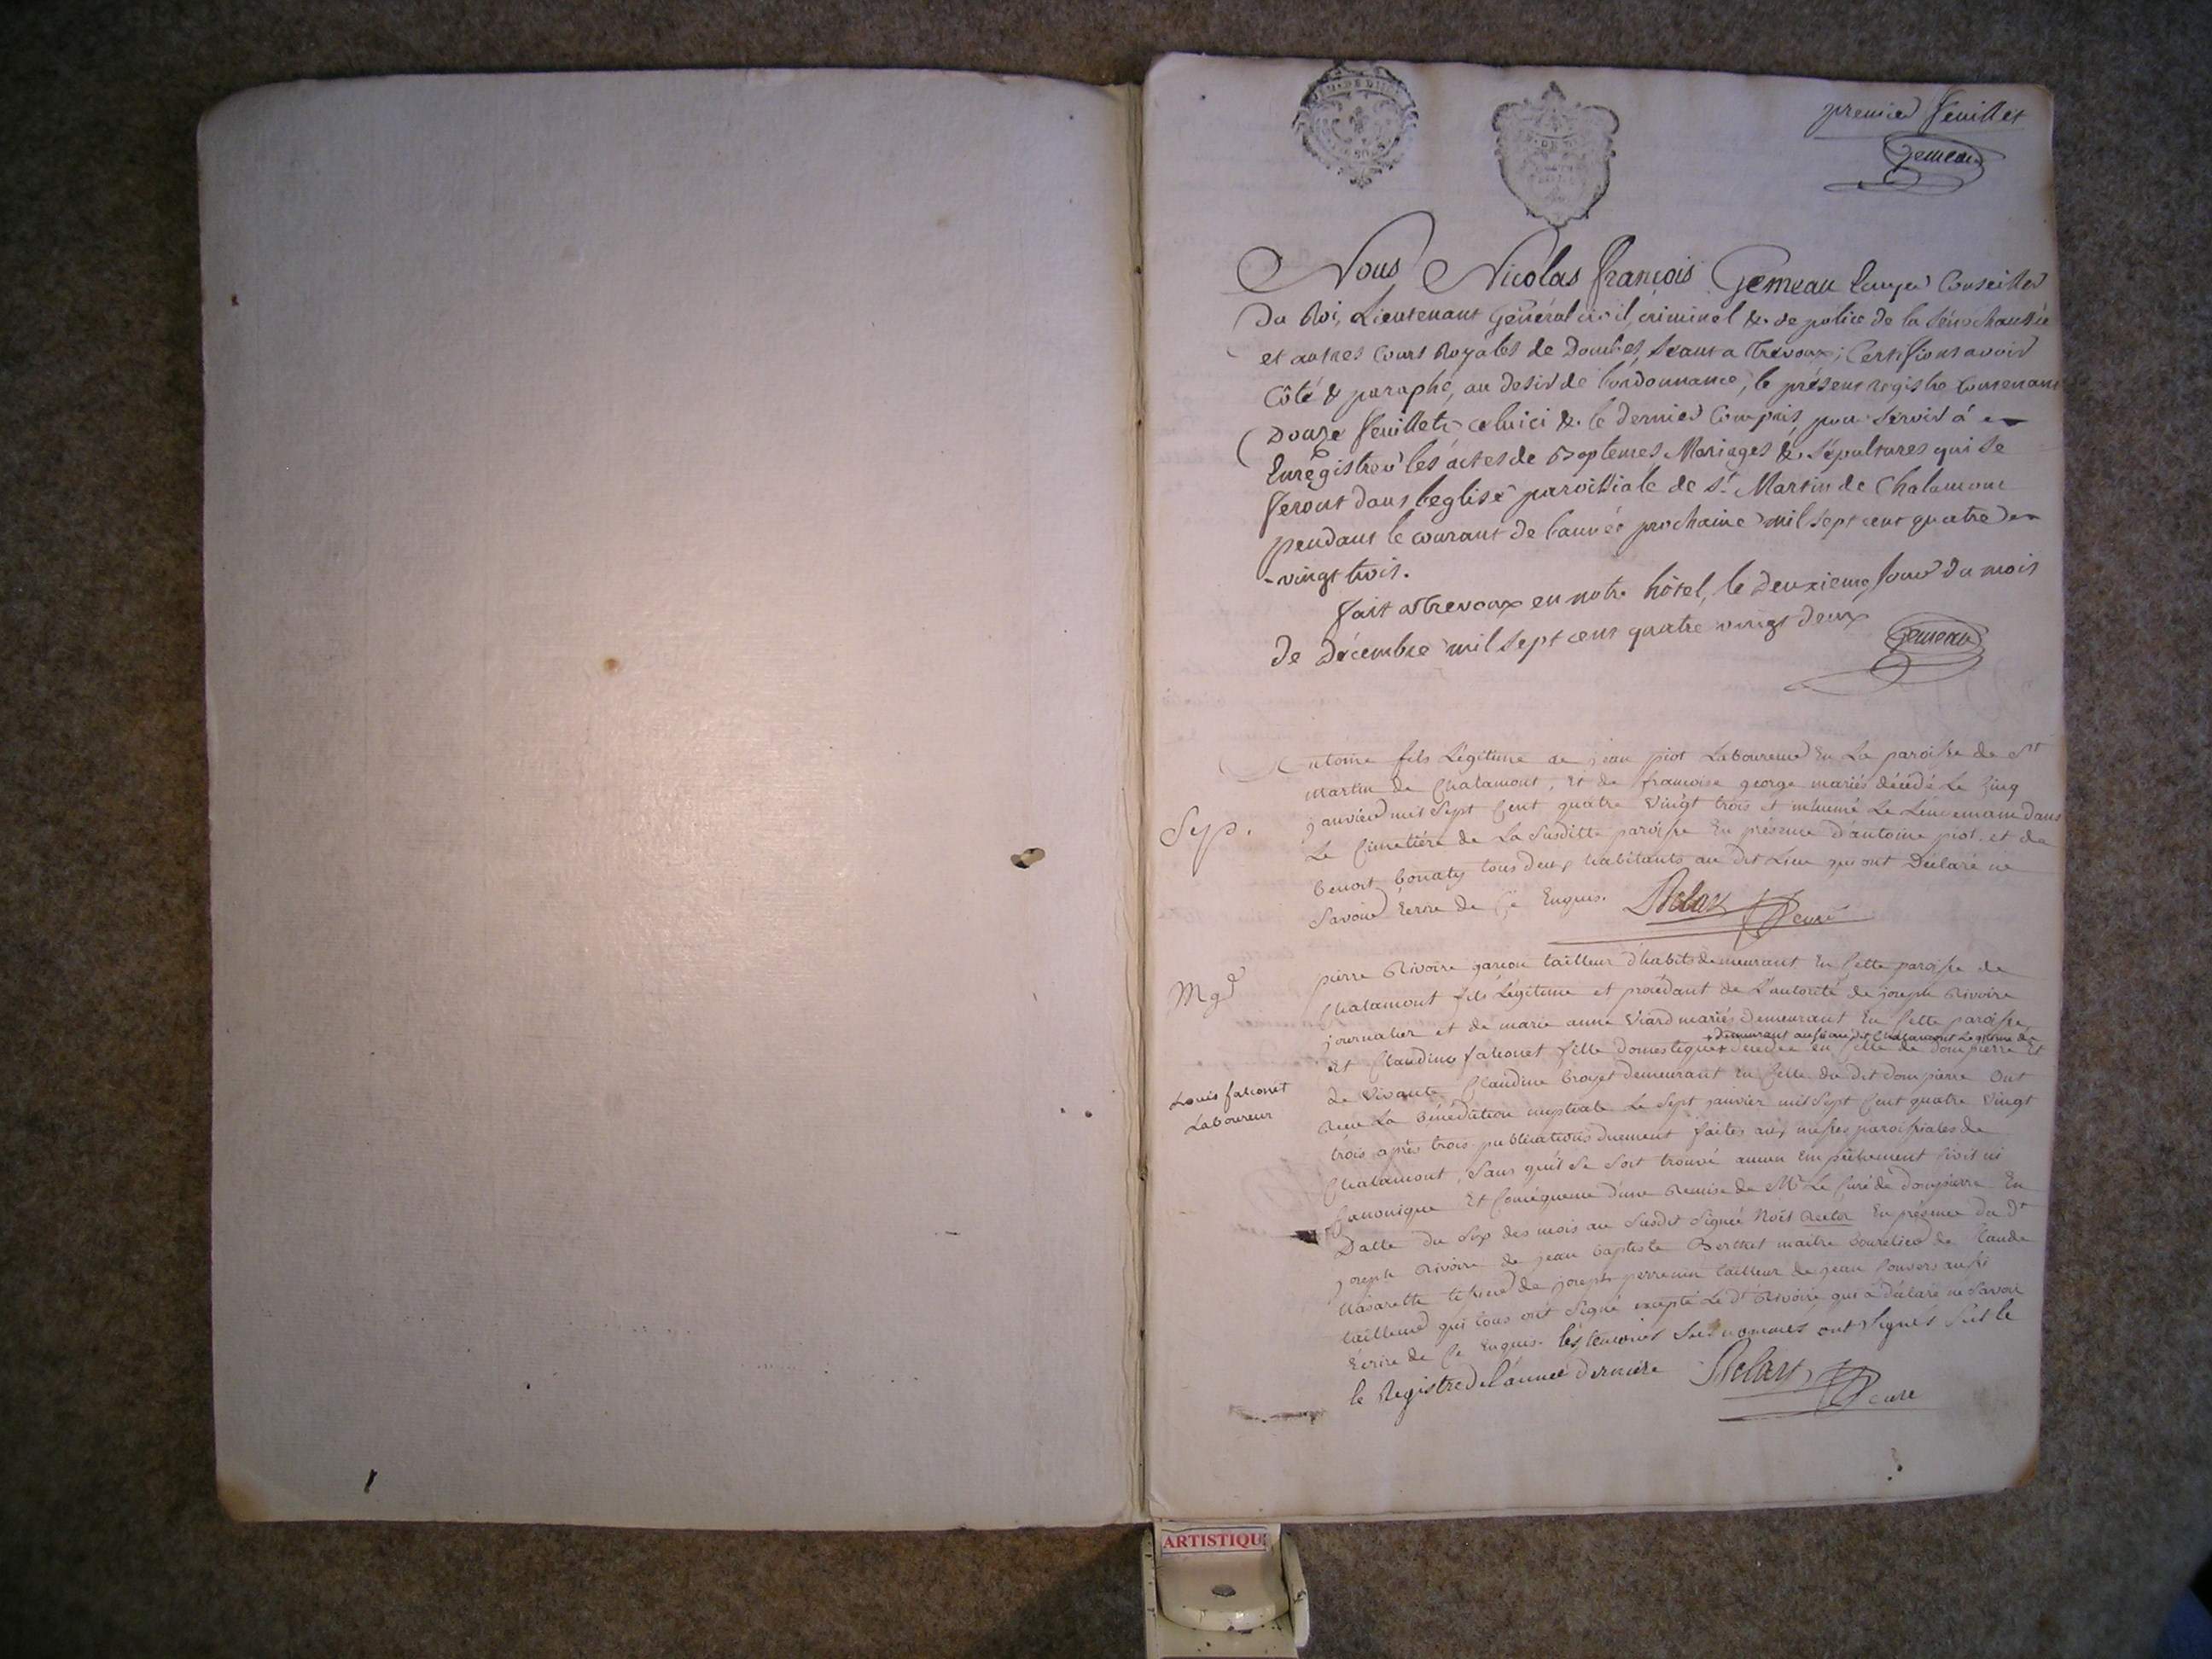 premier feuillet
Gemeau
Nous Nicolas François Gemeau Ecuyer Conseiller
Du Roi, Lieutenant Général civil, criminel & de police de la Sénéchaussée
et autres Cours Royales de Dombes, Séant a Trévoux; Certifions avoir
Côté & paraphé, au desir de l'ordonnance, le présent registre contenant
Douze feuillets celuici & le dernier compris, pour servir à
Enregistrer les actes de Baptemes Mariages & Sépultures qui se
feront dans l'eglise paroissiale de St Martin de Chalamont
pendant le courant de l'année prochaine mil sept cent quatre
-vingt trois.
fait a Trevoux en notre hôtel, le deuxieme jour du mois
de décembre mil sept cent quatre vingt deux
Gemeau
Antoine fils Légitime de jean piot Laboureur En La paroisse de St
martin de Chalamont, Et de francoise george mariés décédé Le Cinq
janvier mil Sept Cent quatre Vingt trois et inhumé Le Lendemain dans
Sep.
Le Cimetière de La Susditte paroisse En présence d'antoine piot et de
benoit bonaty tous deux habitants au dit Lieu qui ont Déclaré ne
Savoir Ecrire de Ce Enquis. curé
Mge
pierre Rivoire garcon tailleur d'habits demeurant En Cette paroisse de
Chalamont fils Légitime et procédant de L'autorité de joseph Rivoire
journalier et de marie anne Viard mariés Demeurant En Cette paroisse,
+ Demeurant aussi au dit Chalamont Legitime de
Et Claudine falconet fille Domestique + décédé en Celle de Dompierre Et
Louis falconet
Laboureur
de Vivante Claudine broyet demeurant En Celle du dit dompierre Ont
Recu La Bénédiction nuptiale Le Sept janvier mil Sept Cent quatre Vingt
trois après trois publications duement faites aux messes paroissiales de
Chalamont, Sans qu'il Se Soit trouvé aucun Empêchement Civil ni
Canonique Et Conséquence d'une Remise de Mr Le Curé de dompierre En
Datte du Six des mois au Susdit Signée Noël Rector En présence du dt
joseph Rivoire de jean baptiste Berthet maitre bourelier de Claude
Nasarette de joseph perrenin tailleur de jean aussi
tailleur qui tous ont Signé excepté Le dt Rivoire qui a déclaré ne Savoir
Ecrire de Ce Enquis. les temoins Susnommés ont Signés Sur le
le Registre de l'année derniere curé
ARTISTIQU